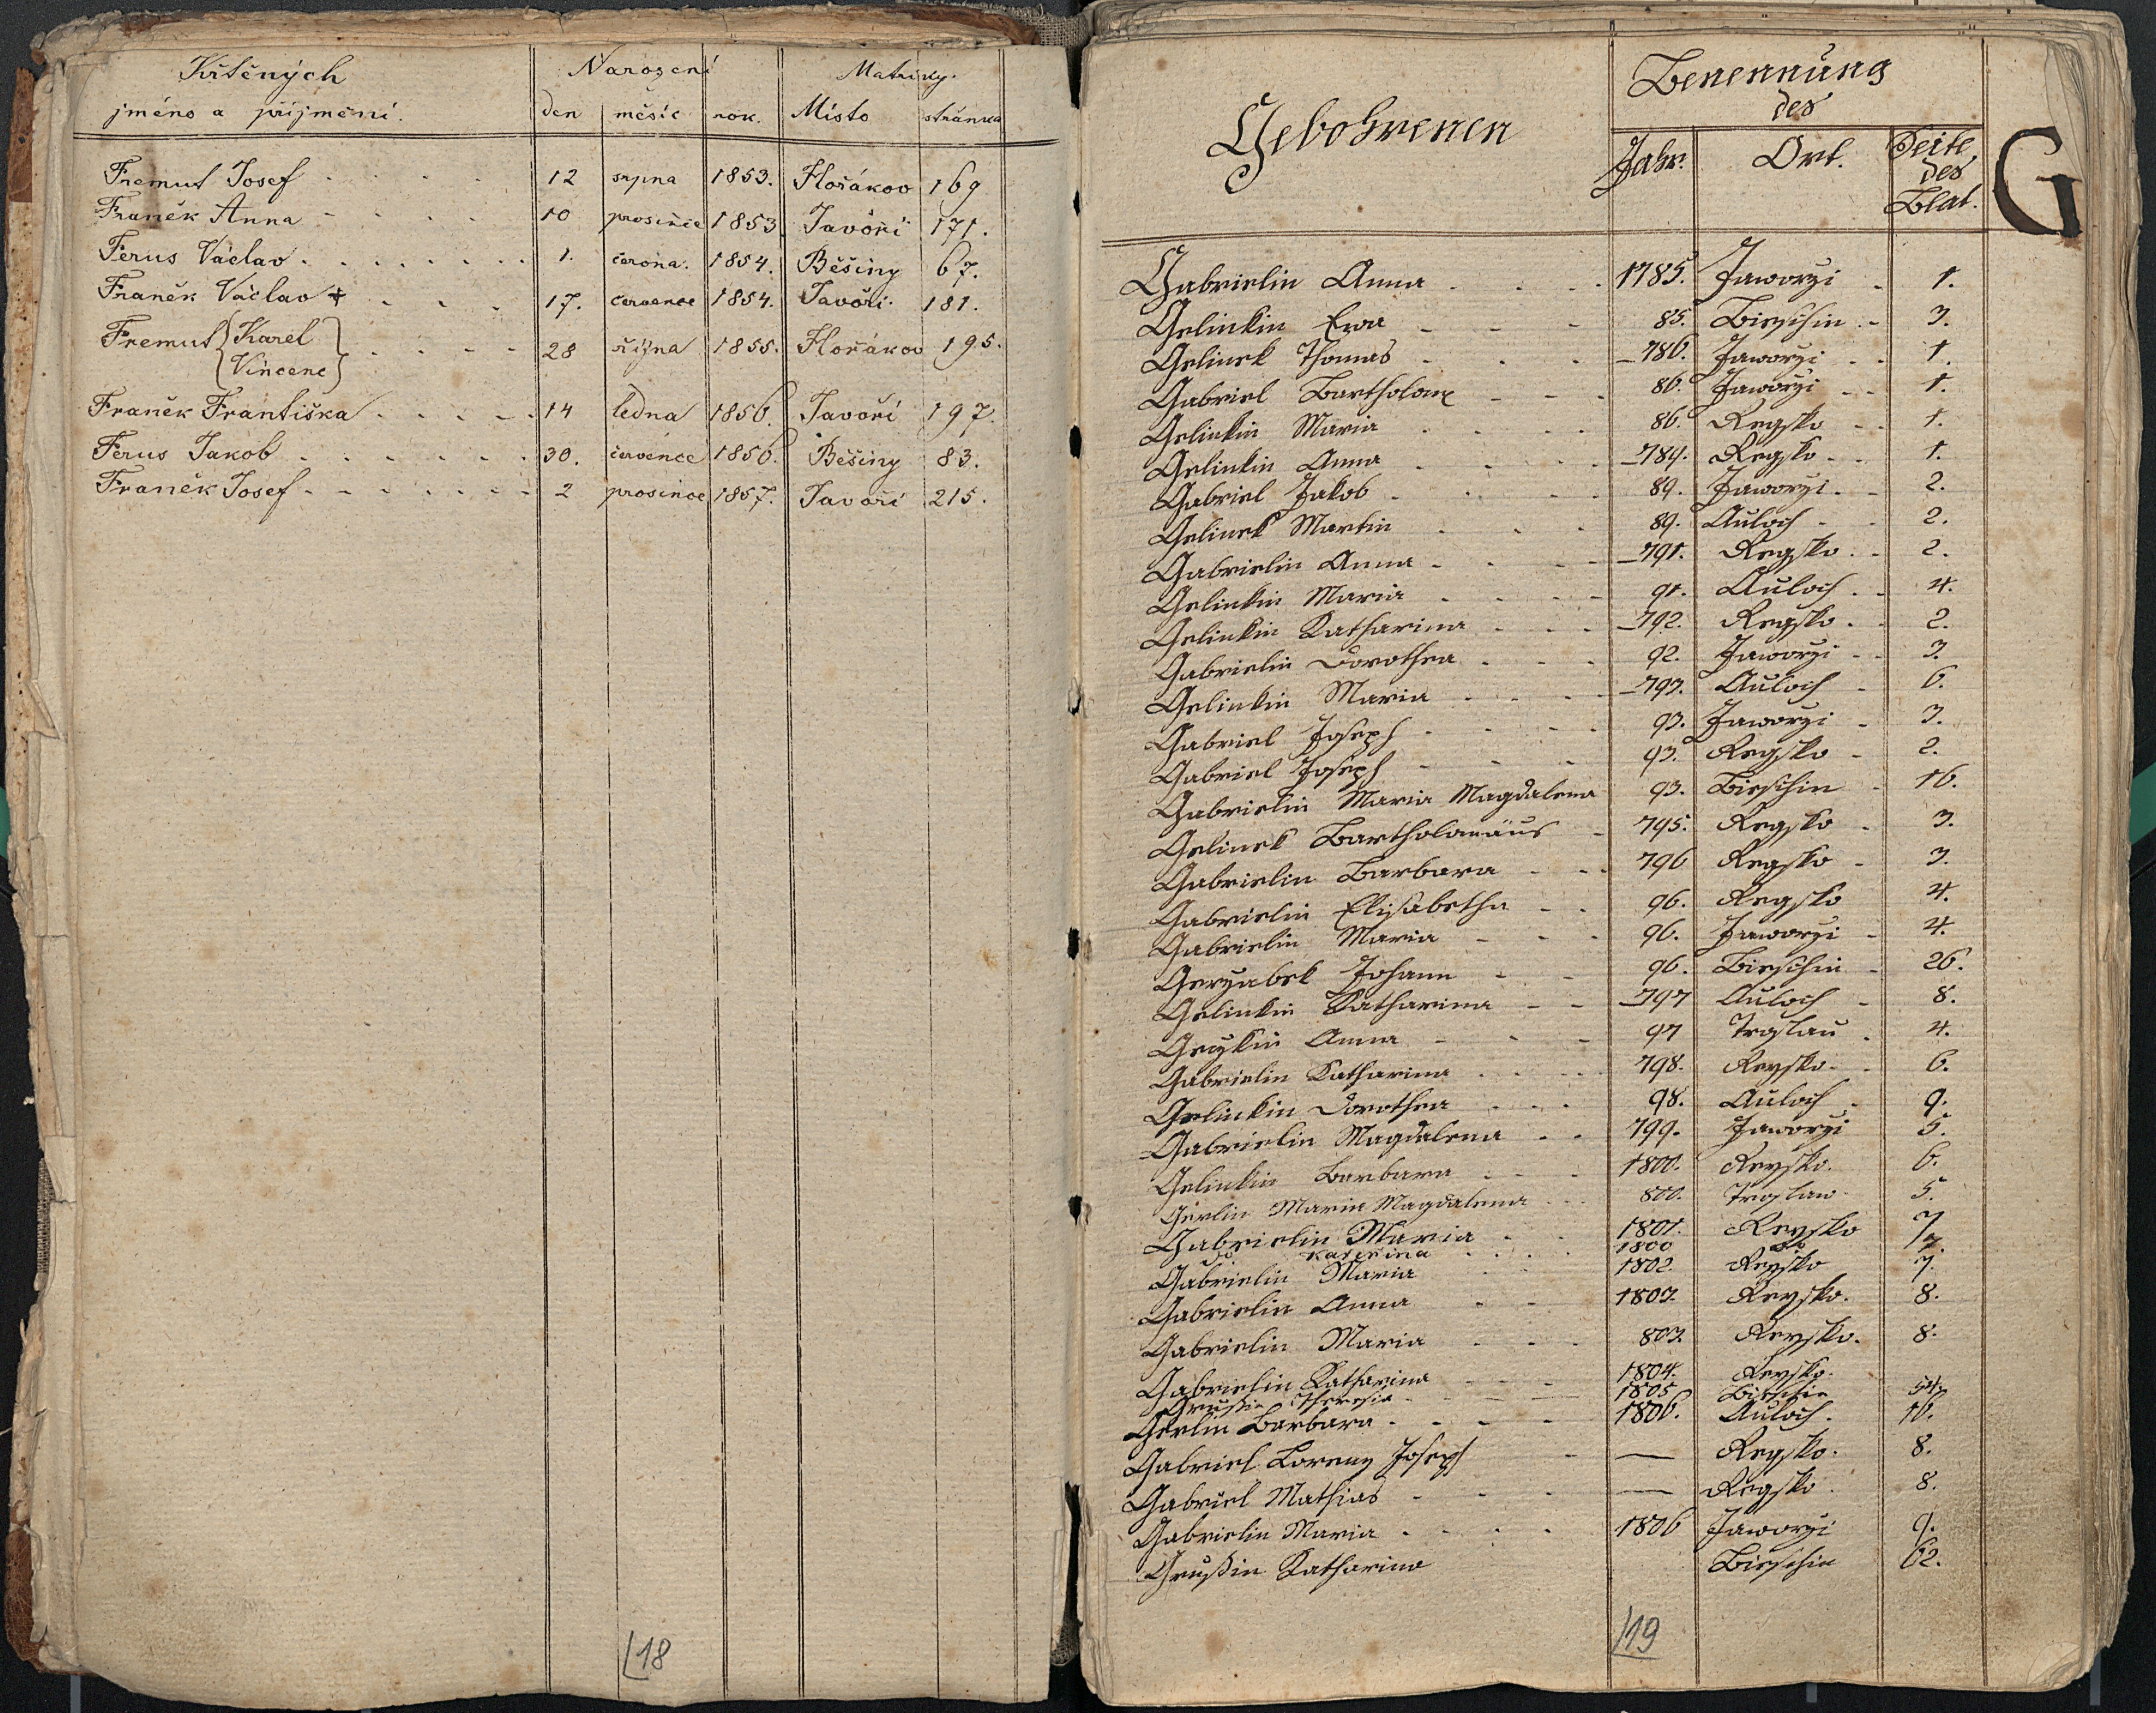 Křtěných Narození Matriky.
jméno a příjmění. den měsíc rok. Místo stránka
Fremut Josef 12 srpna 1853. Hořákov 169
Franěk Anna 10 prosince 1853 Javoří 171.
Ferus Václav 1. června. 1854. Běšiny 67.
Franěk Václav + 17. července 1854. Javoří. 181.
Fremut { Karel
Vincenc } 28 října 1855. Hořákov 195.
Franěk Františka 14 ledna 1856. Javoří 197.
Ferus Jakob 30. července 1856. Běšiny 83.
Franěk Josef 2 prosince 1857. Javoří 215.
18
Gebohrenen
Benennung
des
Jahr. Ort. Seite
des
Blat.
G
Gabrielin Anna 1785. Jaworzi 1.
Gelinkin Ewa 85. Bieschin 3.
Gelinek Thomas 786. Jaworzi 1.
Gabriel Bartholome 86. Jaworzi 1.
Gelinkin Maria 86. Regsko 1.
Gelinkin Anna 789. Regsko 1.
Gabriel Jakob 89. Jaworzi 2.
Gelinek Martin 89. Auloch 2.
Gabrielin Anna 791. Regsko 2.
Gelinkin Maria 91. Auloch 4.
Gelinkin Katharina 792. Regsko 2.
Gabrielin Dorothea 92. Jaworzi 3.
Gelinkin Maria 793. Auloch 6.
Gabriel Joseph 93. Jaworzi 3.
Gabriel Joseph 93. Regsko 2.
Gabrielin Maria Magdalena 93. Bieschin 16.
Gelinek Bartholomäus 795. Regsko 3.
Gabrielin Barbara 796 Regsko 3.
Gabrielin Elisabetha 96. Regsko 4.
Gabrielin Maria 96. Jaworzi 4.
Gerzabek Johann 96. Bieschin 26.
Gelinkin Katharina 797 Auloch 8.
Anna 97 Troslau 4.
Gabrielin Katharina 798. Reysko 6.
Gelinkin Dorothea 98. Auloch 9.
Gabrielin Magdalena 799. Jaworzi 5.
Gelinkin Barbara 1800. Reysko. 6.
Gerlin Maria Magdalena 800. Troslau 5.
Gabrielin Maria 1801. Reysko 7
Kateřina 1800 7.
Gabrielin Maria 1802. Reysko 7.
Gabrielin Anna 1803. Reysko. 8.
Gabrielin Maria 803. Reysko. 8.
Gabrielin Katharina 1804. Reysko.
Grußin Theresia 1805 Bieschin 54.
Gerlin Barbara 1806. Auloch. 16.
Gabriel Lorenz Joseph — Regsko. 8.
Gabriel Mathias — Regsko. 8.
Gabrielin Maria 1806 Jaworzi 9.
Grußin Katharina Bieschin 62.
19